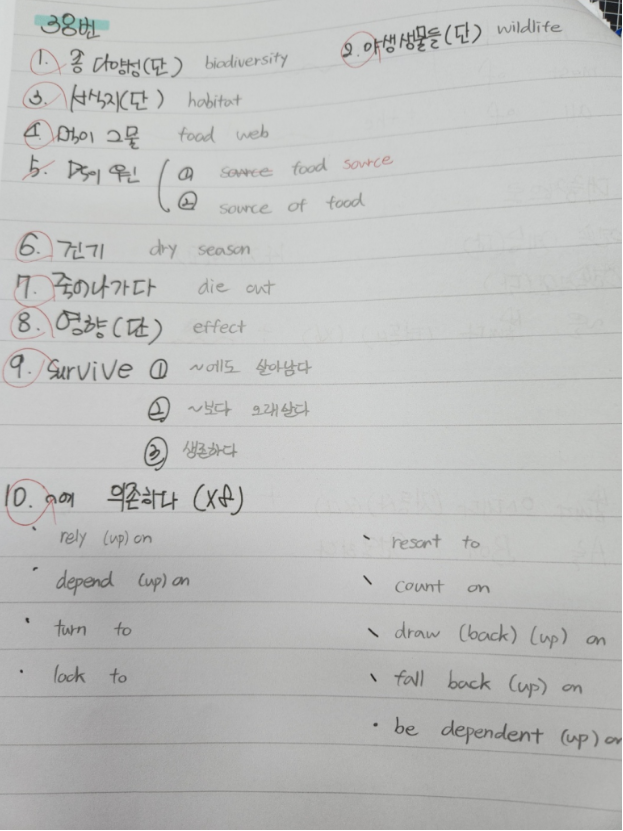 38번
1. 종 다양성(단) biodiversity
2. 야생생물들(단) wildlife
3. 서식지(단) habitat
4. 먹이 그물 food web
5. 먹이 원 ① source food source
② source of food
6. 건기 dry season
7. 죽어나가다 die out
8. 영향(단) effect
9. survive ① ~에도 살아남다
② ~보다 오래살다
③ 생존하다
10. ~에 의존하다 (x8)
· rely (up) on
· depend (up) on
· turn to
· look to
· resort to
· count on
· draw (back) (up) on
· fall back (up) on
· be dependent (up) on